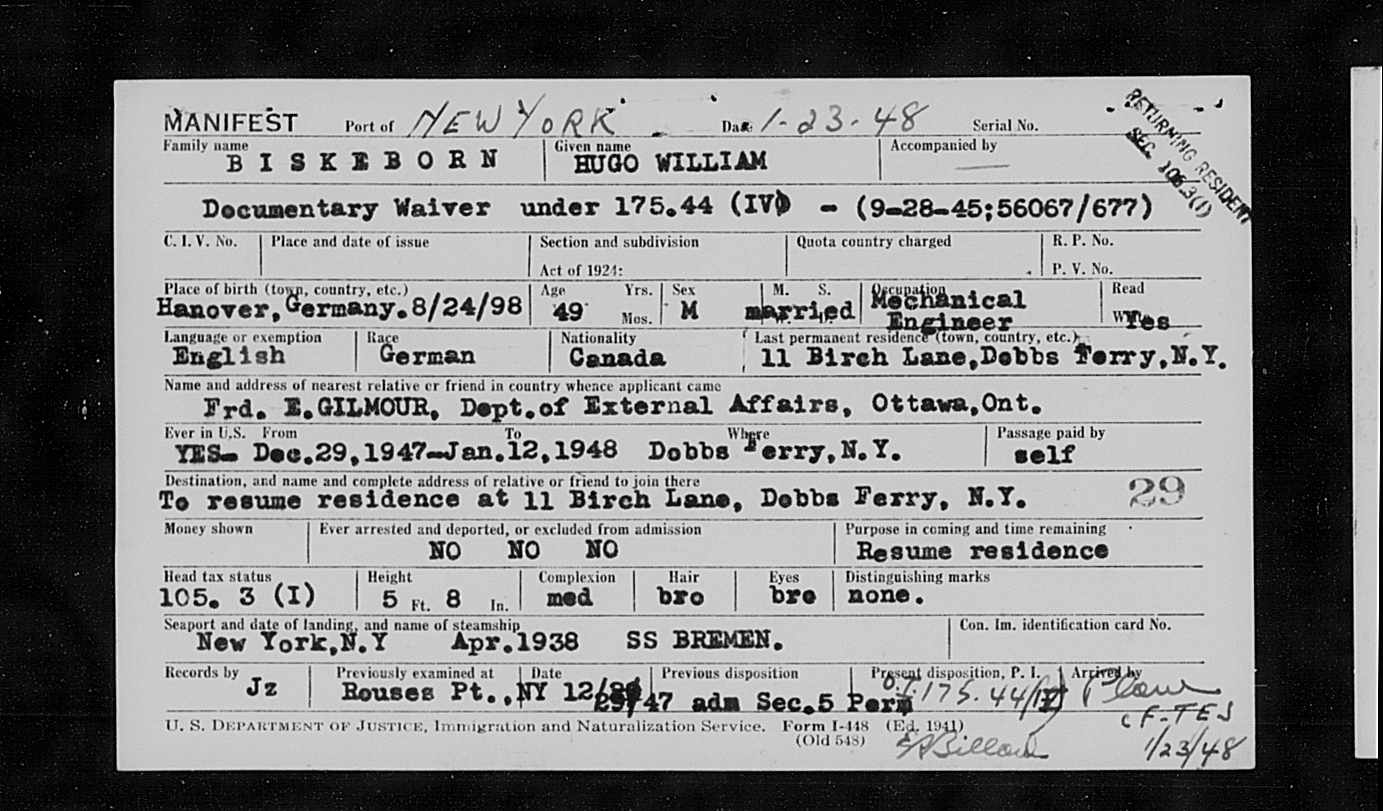 MANIFEST Port of NEW YORK Date 1-23-48 Serial No.
RETURNING RESIDENT
SEC. 105.3(I)
Family name Given name Accompanied by
BISKEBORN HUGO WILLIAM
Documentary Waiver under 175.44 (IV) - (9-28-45;56067/677)
C. I. V. No. Place and date of issue Section and subdivision Quota country charged R. P. No.
Act of 1924: P. V. No.
Place of birth (town, country, etc.) Age Yrs. Sex M. S. Occupation Read
Hanover, Germany. 8/24/98 49 Mos. M married Mechanical
Engineer Yes
Language or exemption Race Nationality Last permanent residence (town, country, etc.)
English German Canada 11 Birch Lane, Dobbs Ferry, N.Y.
Name and address of nearest relative or friend in country whence applicant came
Frd. E.GILMOUR, Dept.of External Affairs, Ottawa,Ont.
Ever in U.S. From To Where Passage paid by
YES- Dec.29,1947-Jan.12,1948 Dobbs Ferry,N.Y. self
Destination, and name and complete address of relative or friend to join there
To resume residence at 11 Birch Lane, Dobbs Ferry, N.Y. 29
Money shown Ever arrested and deported, or excluded from admission Purpose in coming and time remaining
NO NO NO Resume residence
Head tax status Height Complexion Hair Eyes Distinguishing marks
105. 3 (I) 5 Ft. 8 In. med bro bro none.
Seaport and date of landing, and name of steamship Con. Im. identification card No.
New York,N.Y Apr.1938 SS BREMEN.
Records by Previously examined at Date Previous disposition Present disposition, P. I. Arrived by
Jz Rouses Pt..,NY 12/29/47 adm Sec.5 Perm O.I. 175.44/IV Plane
U. S. DEPARTMENT OF JUSTICE, Immigration and Naturalization Service. Form I-448 (Ed. 1941)
(Old 548)
CF-TES
1/23/48